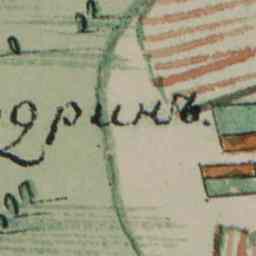 дринъ.